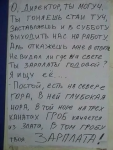 О, ДИРЕКТОР, ТЫ МОГУЧ,
ТЫ ГОНЯЕШЬ СТАИ ТУЧ,
ЗАСТАВЛЯЕШЬ И В СУББОТУ
ВЫХОДИТЬ НАС НА РАБОТУ.
АЛЬ ОТКАЖЕШЬ МНЕ В ОТВЕТЕ
НЕ ВИДАЛ ЛИ ГДЕ НА СВЕТЕ
ТЫ ЗАРПЛАТЫ
Я ИЩУ ЕЁ...
ПОСТОЙ, ЕСТЬ НА СЕВЕРЕ
ГОРА, В НЕЙ ГЛУБОКАЯ
НОРА, В ТОЙ НОРЕ НА ТРЁХ
КАНАТАХ ГРОБ КАЧАЕТСЯ
ИЗ ЗЛАТА, В ТОМ ГРОБУ
ТВОЯ ЗАРПЛАТА!